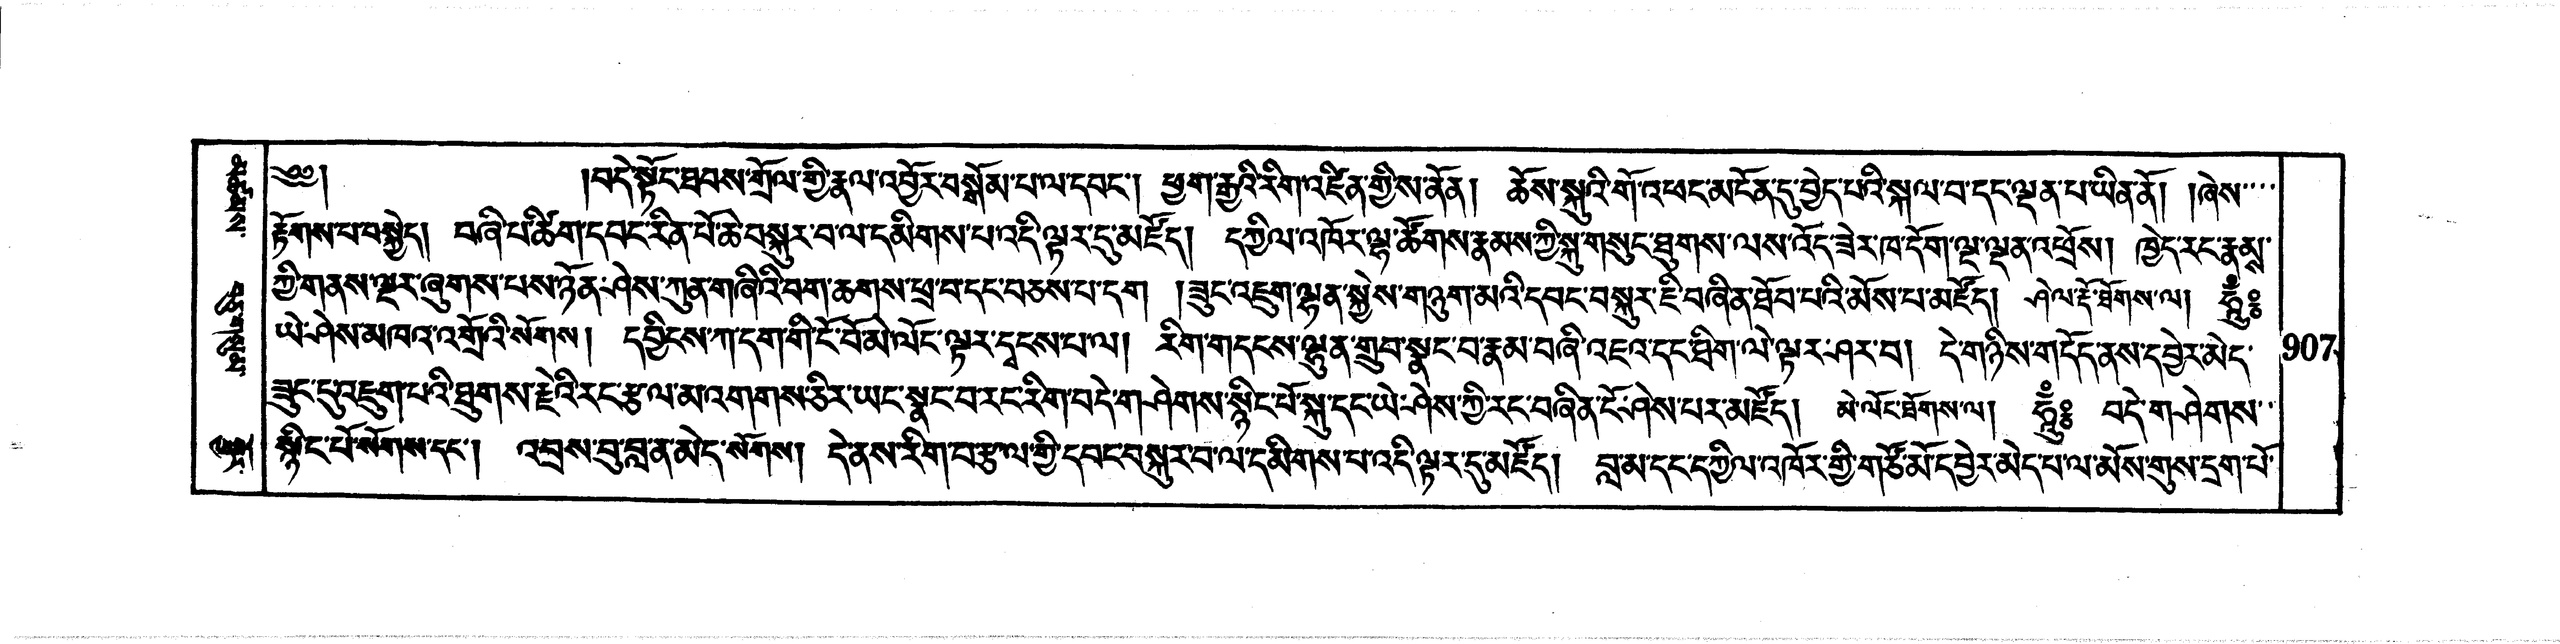 ༄༅། །བདེ་སྟོང་ཐབས་གྲོལ་གྱི་རྣལ་འབྱོར་བསྒོམ་པ་ལ་དབང་། ཕྱག་རྒྱའི་རིག་འཛིན་གྱི་ས་ནོན། ཆོས་སྐུའི་གོ་འཕང་མངོན་དུ་བྱེད་པའི་སྐལ་བ་དང་ལྡན་པ་ཡིན་ནོ། །ཞེས་
རྟོགས་པ་བསྐྱེད། བཞི་པ་ཚིག་དབང་རིན་པོ་ཆེ་བསྐུར་བ་ལ་དམིགས་པ་འདི་ལྟར་དུ་མཛོད། དཀྱིལ་འཁོར་ལྷ་ཚོགས་རྣམས་ཀྱི་སྐུ་གསུང་ཐུགས་ལས་འོད་ཟེར་ཁ་དོག་ལྔ་ལྡན་འཕྲོས། ཁྱེད་རང་རྣམས་
ཀྱི་གནས་ལྔར་ཞུགས་པས་ཉོན་ཤེས་ཀུན་གཞིའི་བག་ཆགས་ཕྲ་བ་དང་བཅས་པ་དག །ཟུང་འཇུག་ལྷན་སྐྱེས་གཉུག་མའི་དབང་བསྐུར་ཇི་བཞིན་ཐོབ་པའི་མོས་པ་མཛོད། ཤེལ་རྡོ་ཐོགས་ལ། ཧཱུྃ༔
ཡེ་ཤེས་མཁའ་འགྲོའི་སོགས། དབྱིངས་ཀ་དག་གི་ངོ་བོ་མེ་ལོང་ལྟར་དྭངས་པ་ལ། རིག་གདངས་ལྷུན་གྲུབ་སྣང་བ་རྣམ་བཞི་འཇའ་དང་ཐིག་ལེ་ལྟར་ཤར་བ། དེ་གཉིས་གདོད་ནས་དབྱེར་མེད་
ཟུང་དུ་འཇུག་པའི་ཐུགས་རྗེའི་རང་རྩལ་མ་འགགས་ཅིར་ཡང་སྣང་བ་རང་རིག་བདེ་གཤེགས་སྙིང་པོ་སྐུ་དང་ཡེ་ཤེས་ཀྱི་རང་བཞིན་ངོ་ཤེས་པར་མཛོད། མེ་ལོང་ཐོགས་ལ། ཧཱུྃ༔ བདེ་གཤེགས་
སྙིང་པོ་སོགས་དང་། འབྲས་བུ་བླན་མེད་སོགས། དེ་ནས་རིག་པ་རྩལ་གྱི་དབང་བསྐུར་བ་ལ་དམིགས་པ་འདི་ལྟར་དུ་མཛོད། བླ་མ་དང་དཀྱིལ་འཁོར་གྱི་གཙོ་མོ་དབྱེར་མེད་པ་ལ་མོས་གུས་དྲག་པོ་
907